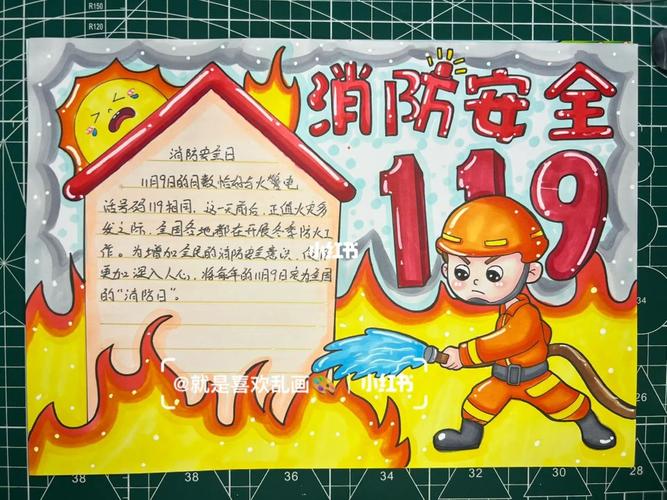 R150
R120
消防安全
119
消防安全日
11月9日的月数恰好与火警电
话号码119相同,这一天前后,正值火灾多
发之际,全国各地都在开展冬季防火工
作。为增加全民的消防安全意识,
更加深入人心,将每年的11月9日定为全国
的“消防日”。
小红书
@就是喜欢乱画 小红书
34
26
38 36 34 32 30 28